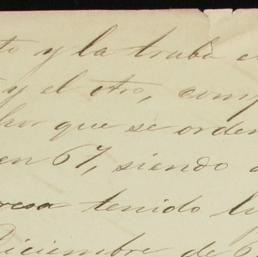 to y la traba e
y el otro, comp
hor que se orden
en 67, siendo
resa tenido lu
Diciembre de 6